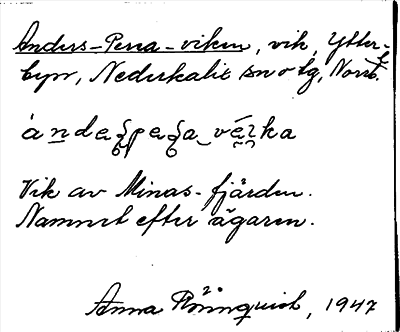 Anders-Persa-viken, vik, Ytter-
byn, Nederkalix sn o tg, Norrb.
Vik av Minas-fjärden.
Namnet efter ägaren.
Anna Rönnquist, 1947